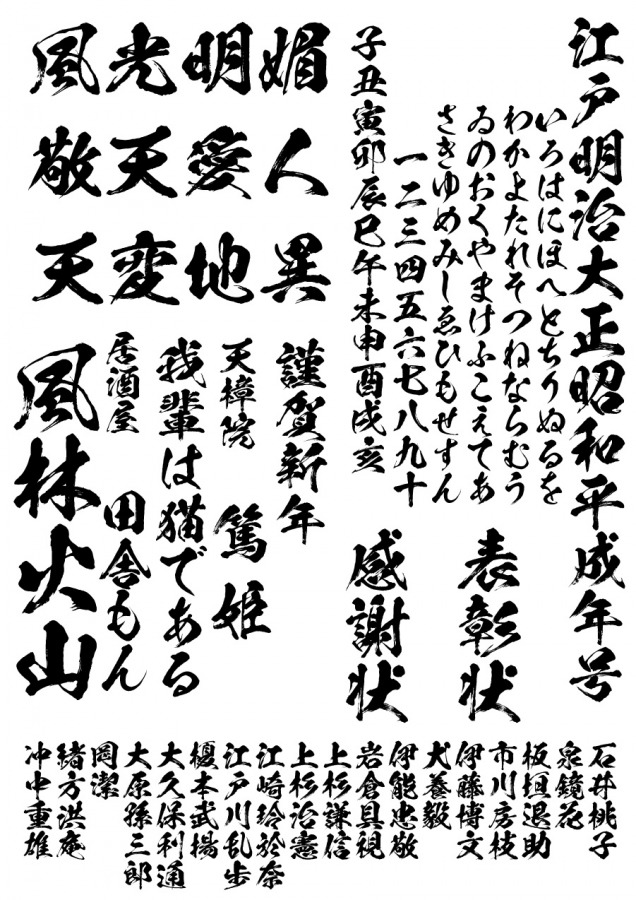 江戸明治大正昭和平成年号
いろはにほへとちりぬるを
わかよたれそつねならむう
ゐのおくやまけふこえてあ
さきゆめみしゑひもせすん
一二三四五六七八九十
子丑寅卯辰巳午未申酉戌亥
表彰状
感謝状
風光明媚
敬天愛人
天変地異
謹賀新年
天樟院 篤姫
我輩は猫である
居酒屋 田舎もん
風林火山
石井桃子
泉鏡花
板垣退助
市川房枝
伊藤博文
犬養毅
伊能忠敬
岩倉具視
上杉謙信
上杉治憲
江崎玲於奈
江戸川乱歩
榎本武揚
大久保利通
大原孫三郎
岡潔
緒方洪庵
冲中重雄